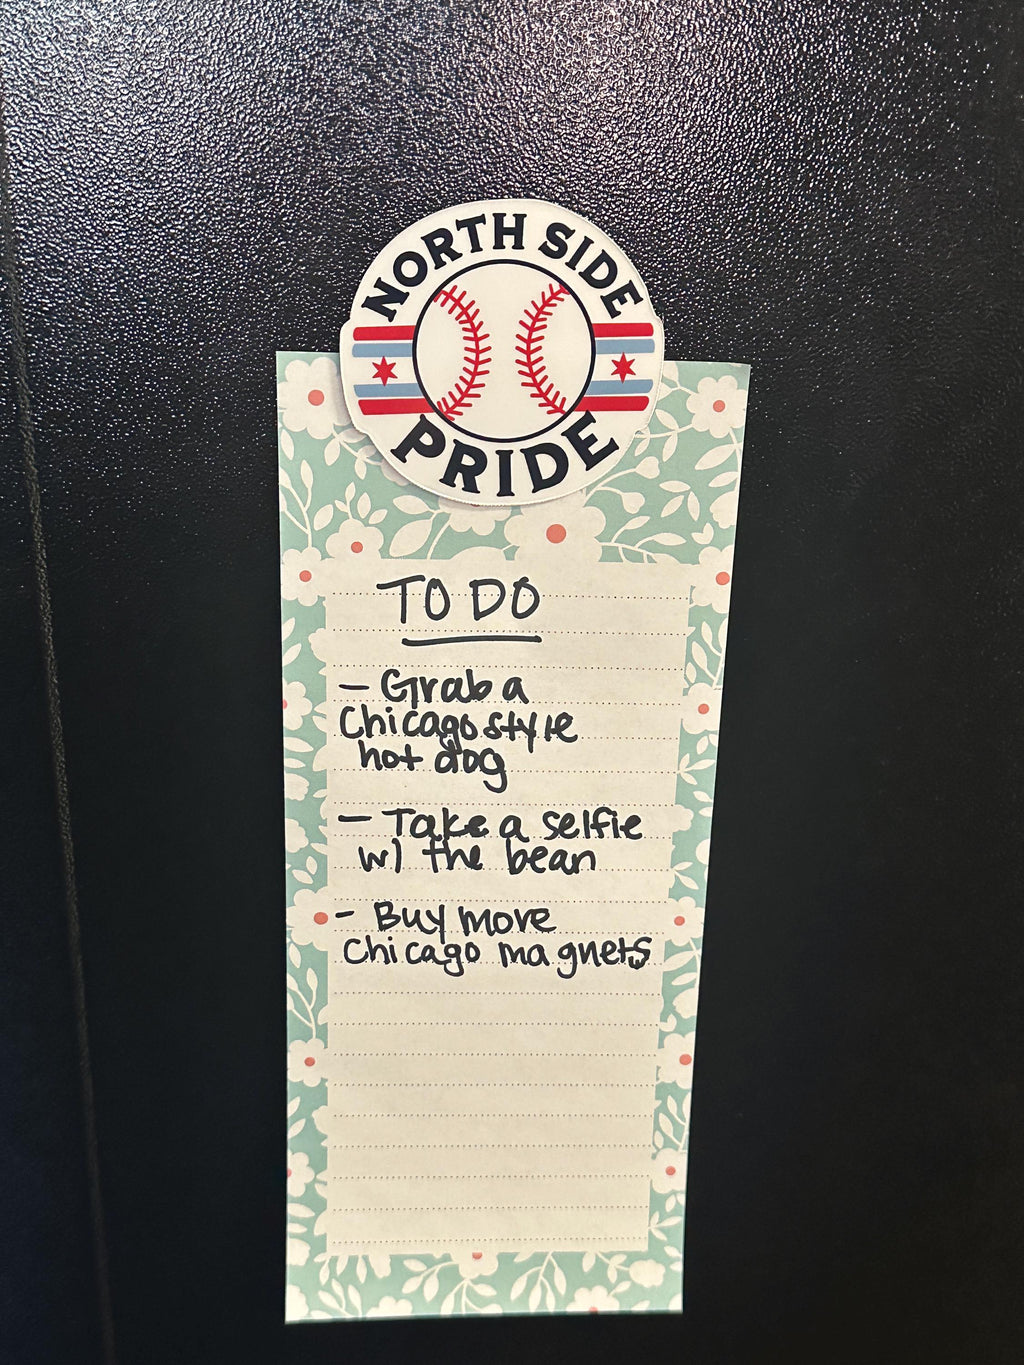 NORTH SIDE
PRIDE
TO DO
- Grab a
Chicago style
hot dog
- Take a selfie
w/ the bean
- Buy more
Chicago magnets